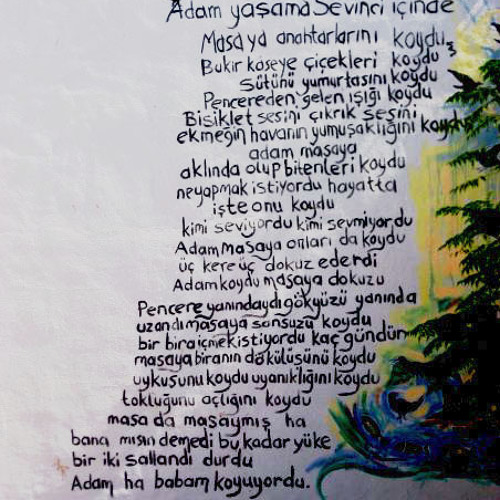 Adam yaşama Sevinci içinde
Masaya anahtarlarını koydu
Bakır kaseye çiçekleri koydu
Sütünü yumurtasını koydu
Pencereden gelen ışığı koydu
Bisiklet sesini çıkrık sesini
ekmeğin havanın yumuşaklığını koydu
adam masaya
aklında olup bitenleri koydu
ne yapmak istiyordu hayatta
işte onu koydu
kimi seviyordu kimi sevmiyordu
Adam masaya onları da koydu
üç kere üç dokuz ederdi
Adam koydu masaya dokuzu
Pencere yanındaydı gökyüzü yanında
uzandı masaya sonsuzu koydu
bir bira içmek istiyordu kaç gündür
masaya biranın dökülüşünü koydu
uykusunu koydu uyanıklığını koydu
tokluğunu açlığını koydu
masa da masaymış ha
bana mısın demedi bu kadar yüke
bir iki sallandı durdu
Adam ha babam koyuyordu.